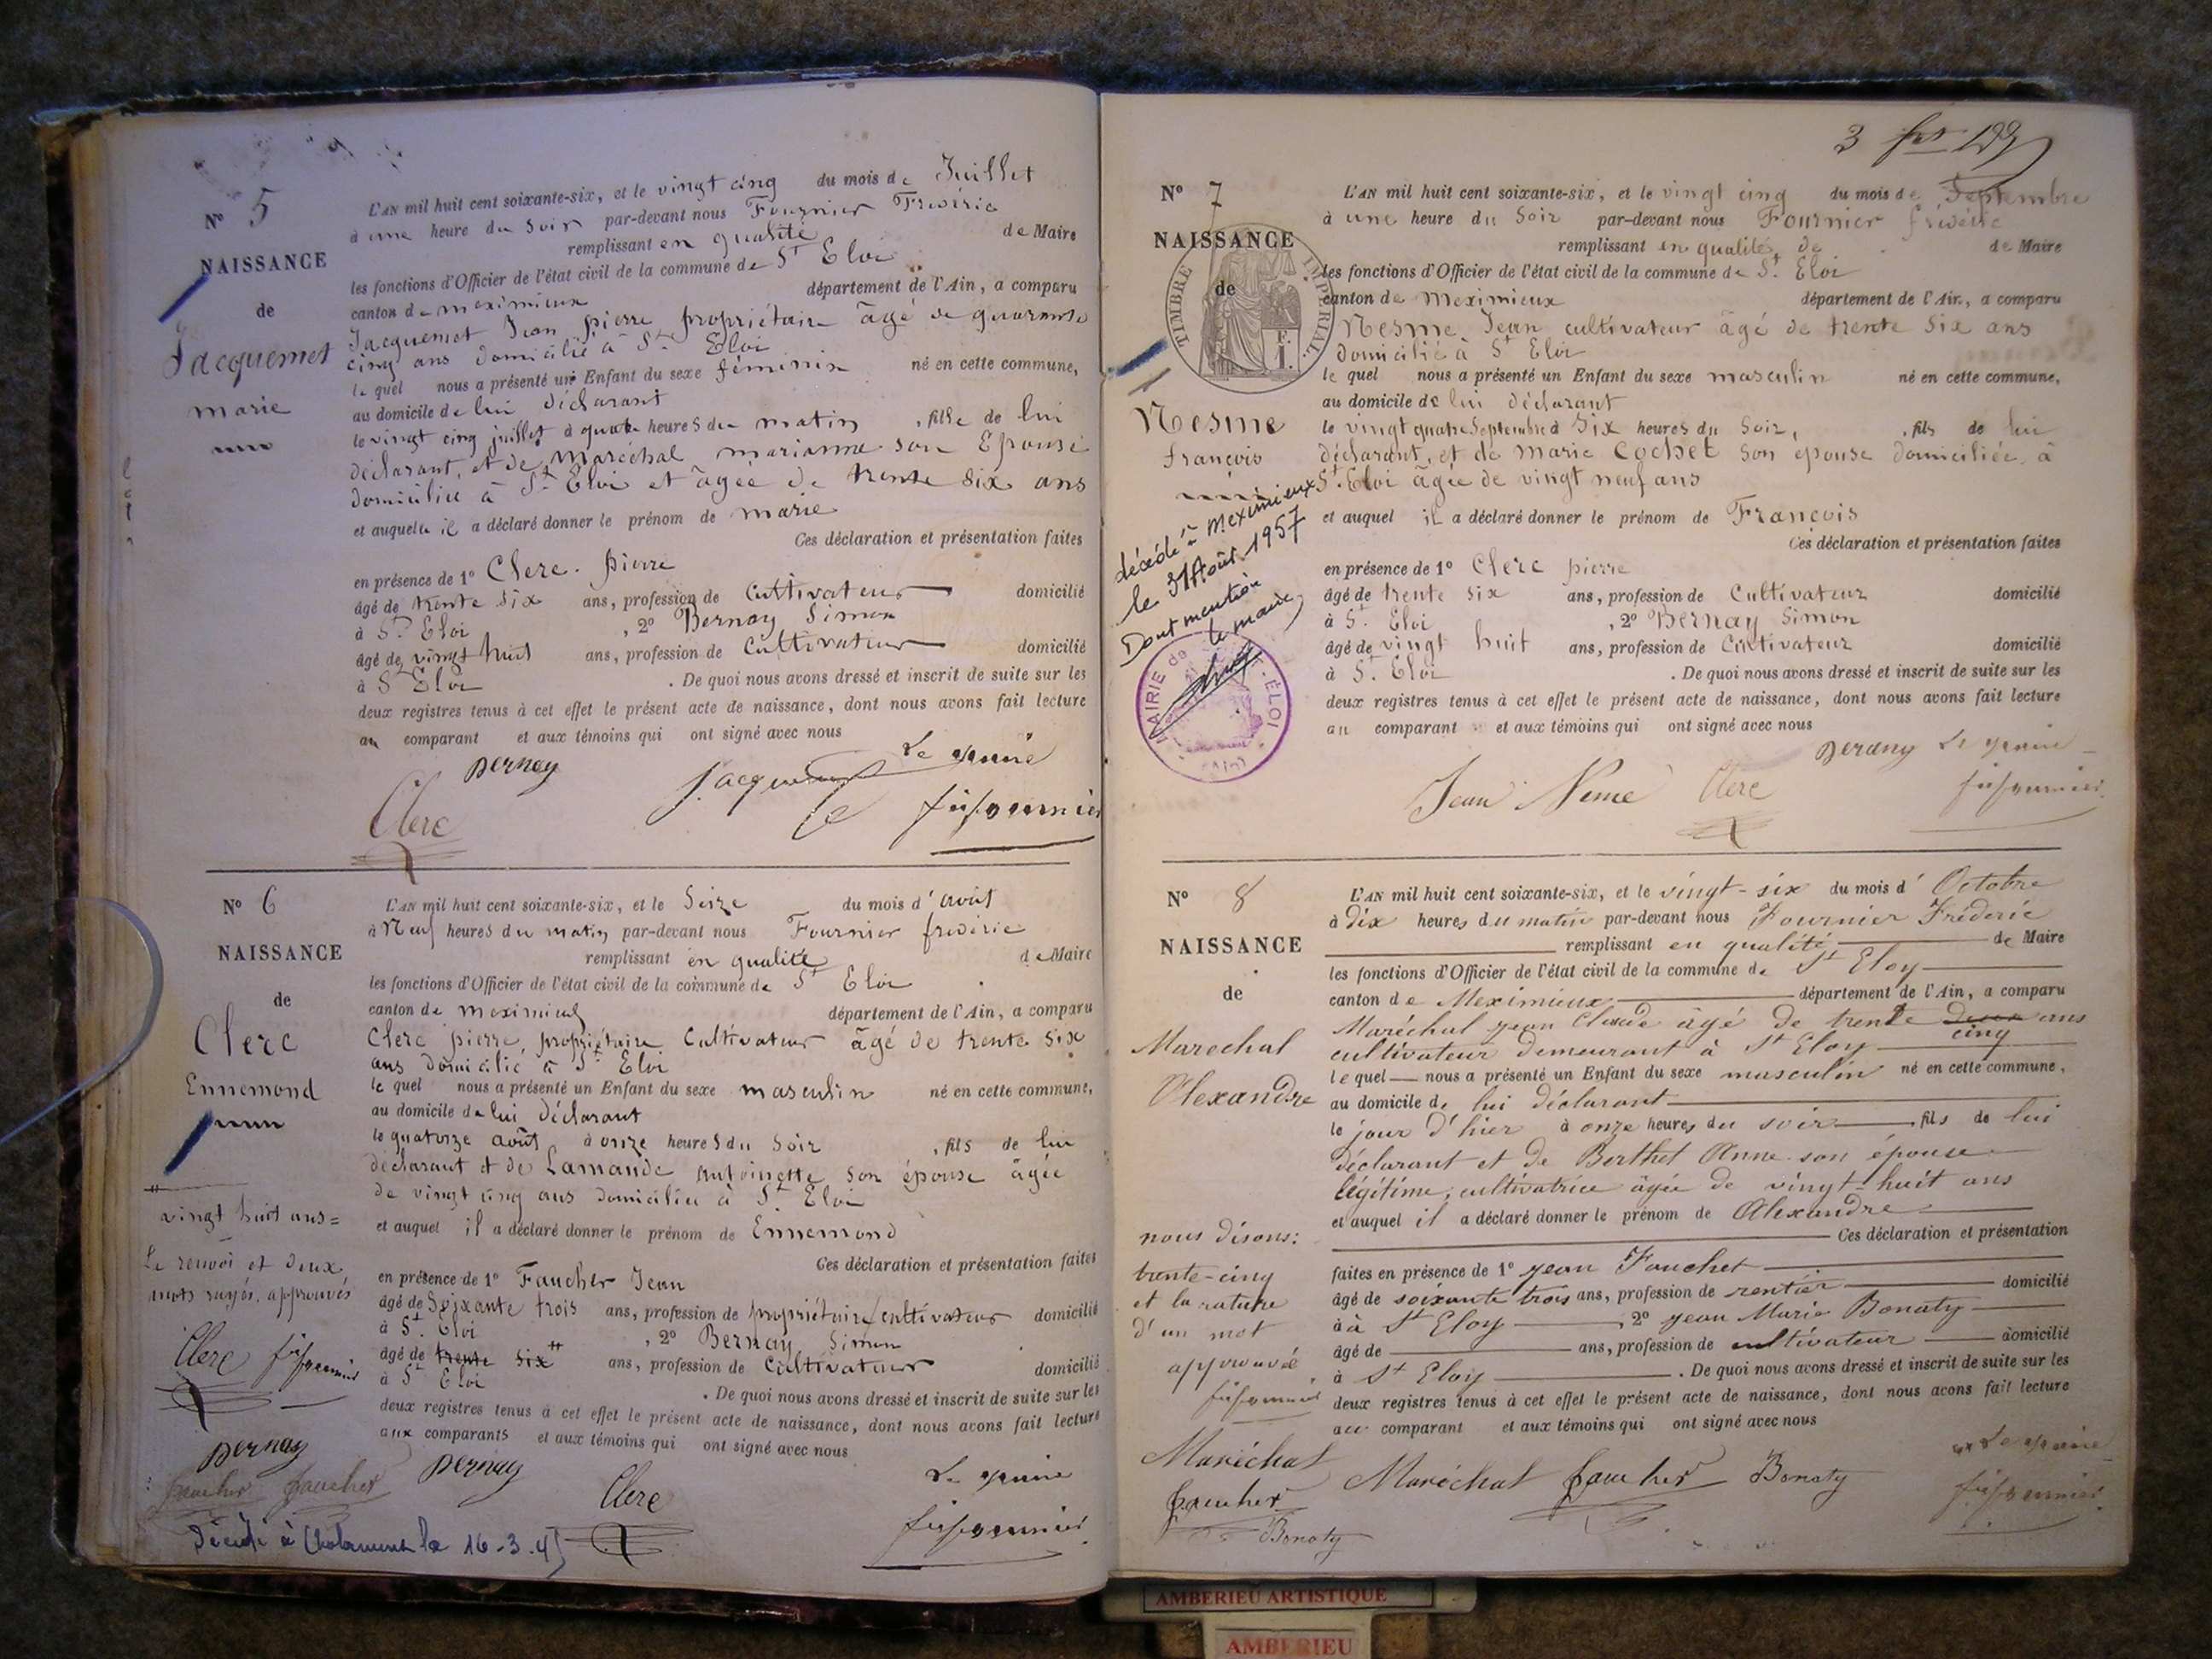 N° 5
NAISSANCE
de
Jacquemet
marie
L'AN mil huit cent soixante-six, et le vingt cinq du mois de Juillet
à une heure du Soir par-devant nous Fournier Frédéric
remplissant en qualité de Maire
les fonctions d'Officier de l'état civil de la commune de St Eloi
canton de meximieux département de l'Ain, a comparu
Jacquemet Jean pierre propriétaire âgé de quarante
cinq ans domicilié à St Eloi
le quel nous a présenté un Enfant du sexe féminin né en cette commune,
au domicile de lui déclarant
le vingt cinq juillet à quatre heures du matin , fille de lui
déclarant, et de Maréchal marianne son Epouse
domicilié à St Eloi et âgée de trente six ans
et auquel il a déclaré donner le prénom de marie
Ces déclaration et présentation faites
en présence de 1° Clerc pierre
âgé de trente six ans, profession de Cultivateur domicilié
à St Eloi , 2° Bernay Simon
âgé de vingt huit ans, profession de Cultivateur domicilié
à St Eloi . De quoi nous avons dressé et inscrit de suite sur les
deux registres tenus à cet effet le présent acte de naissance, dont nous avons fait lecture
au comparant et aux témoins qui ont signé avec nous
Bernay Le maire
Clerc
N° 6
NAISSANCE
de
Clerc
Ennemond
L'AN mil huit cent soixante-six, et le Seize du mois d'août
à Neuf heures du matin par-devant nous Fournier frédéric
remplissant en qualité de Maire
les fonctions d'Officier de l'état civil de la commune de St Eloi
canton de meximieux département de l'Ain, a comparu
Clerc pierre, propriétaire Cultivateur âgé de trente six
ans domicilié à St Eloi
le quel nous a présenté un Enfant du sexe masculin né en cette commune,
au domicile de lui déclarant
le quatorze août à onze heures du Soir , fils de lui
déclarant et de Lamande Antoinette son épouse âgée
de vingt cinq ans domiciliée à St Eloi
et auquel il a déclaré donner le prénom de Ennemond
Ces déclaration et présentation faites
en présence de 1° Faucher Jean
âgé de Soixante trois ans, profession de propriétaire cultivateur domicilié
à St. Eloi , 2° Bernay Simon
âgé de trente six ans, profession de Cultivateur domicilié
à St Eloi . De quoi nous avons dressé et inscrit de suite sur les
deux registres tenus à cet effet le présent acte de naissance, dont nous avons fait lecture
aux comparants et aux témoins qui ont signé avec nous
vingt huit ans=
Le renvoi et deux
mots rayés, approuvés
Clerc
Bernay
faucher faucher
Bernay Clerc Le maire
Décédé à Chalamont le 16-3-45
N° 7
NAISSANCE
de
TIMBRE IMPERIAL
Nesme
françois
décédé à Meximieux
le 31 Août 1957
Dont mention
le maire,
MAIRIE de ST-ELOI
(Ain)
L'AN mil huit cent soixante-six, et le vingt cinq du mois de Septembre
à une heure du Soir par-devant nous Fournier frédéric
remplissant en qualité de de Maire
les fonctions d'Officier de l'état civil de la commune de St. Eloi
canton de Meximieux département de l'Ain, a comparu
Nesme Jean cultivateur âgé de trente Six ans
domicilié à St Eloi
le quel nous a présenté un Enfant du sexe masculin né en cette commune,
au domicile de lui déclarant
le vingt quatre Septembre à Six heures du Soir, , fils de lui
déclarant, et de marie Cochet Son epouse domiciliée à
St. Eloi âgée de vingt neuf ans
et auquel il a déclaré donner le prénom de François
Ces déclaration et présentation faites
en présence de 1° Clerc pierre
âgé de trente six ans, profession de Cultivateur domicilié
à St. Eloi , 2° Bernay Simon
âgé de vingt huit ans, profession de Cultivateur domicilié
à St. Eloi . De quoi nous avons dressé et inscrit de suite sur les
deux registres tenus à cet effet le présent acte de naissance, dont nous avons fait lecture
au comparant et aux témoins qui ont signé avec nous
Le maire
Jean Neme Clerc
N° 8
NAISSANCE
de
Marechal
Alexandre
L'AN mil huit cent soixante-six, et le vingt-six du mois d'Octobre
à dix heures du matin par-devant nous Fournier Fréderic
remplissant en qualité de Maire
les fonctions d'Officier de l'état civil de la commune de St Eloy
canton de Meximieux département de l'Ain, a comparu
Maréchal jean Claude âgé de trente deux cinq ans
cultivateur demeurant à St Eloy
le quel nous a présenté un Enfant du sexe masculin né en cette commune,
au domicile de lui déclarant
le jour d'hier à onze heures du soir fils de lui
déclarant et de Berthet Anne son épouse
légitime, cultivatrice âgée de vingt-huit ans
et auquel il a déclaré donner le prénom de Alexandre
Ces déclaration et présentation
faites en présence de 1° jean Fauchet
âgé de soixante trois ans, profession de rentier domicilié
à à St Eloy , 2° jean Marie Bonaty
âgé de ans, profession de cultivateur domicilié
à St Eloy . De quoi nous avons dressé et inscrit de suite sur les
deux registres tenus à cet effet le présent acte de naissance, dont nous avons fait lecture
au comparant et aux témoins qui ont signé avec nous
nous disons:
trente-cinq
et la rature
d'un mot
approuvée
Maréchal
faucher
Bonaty
Maréchal faucher Bonaty Le maire
AMBERIEU ARTISTIQUE
AMBERIEU